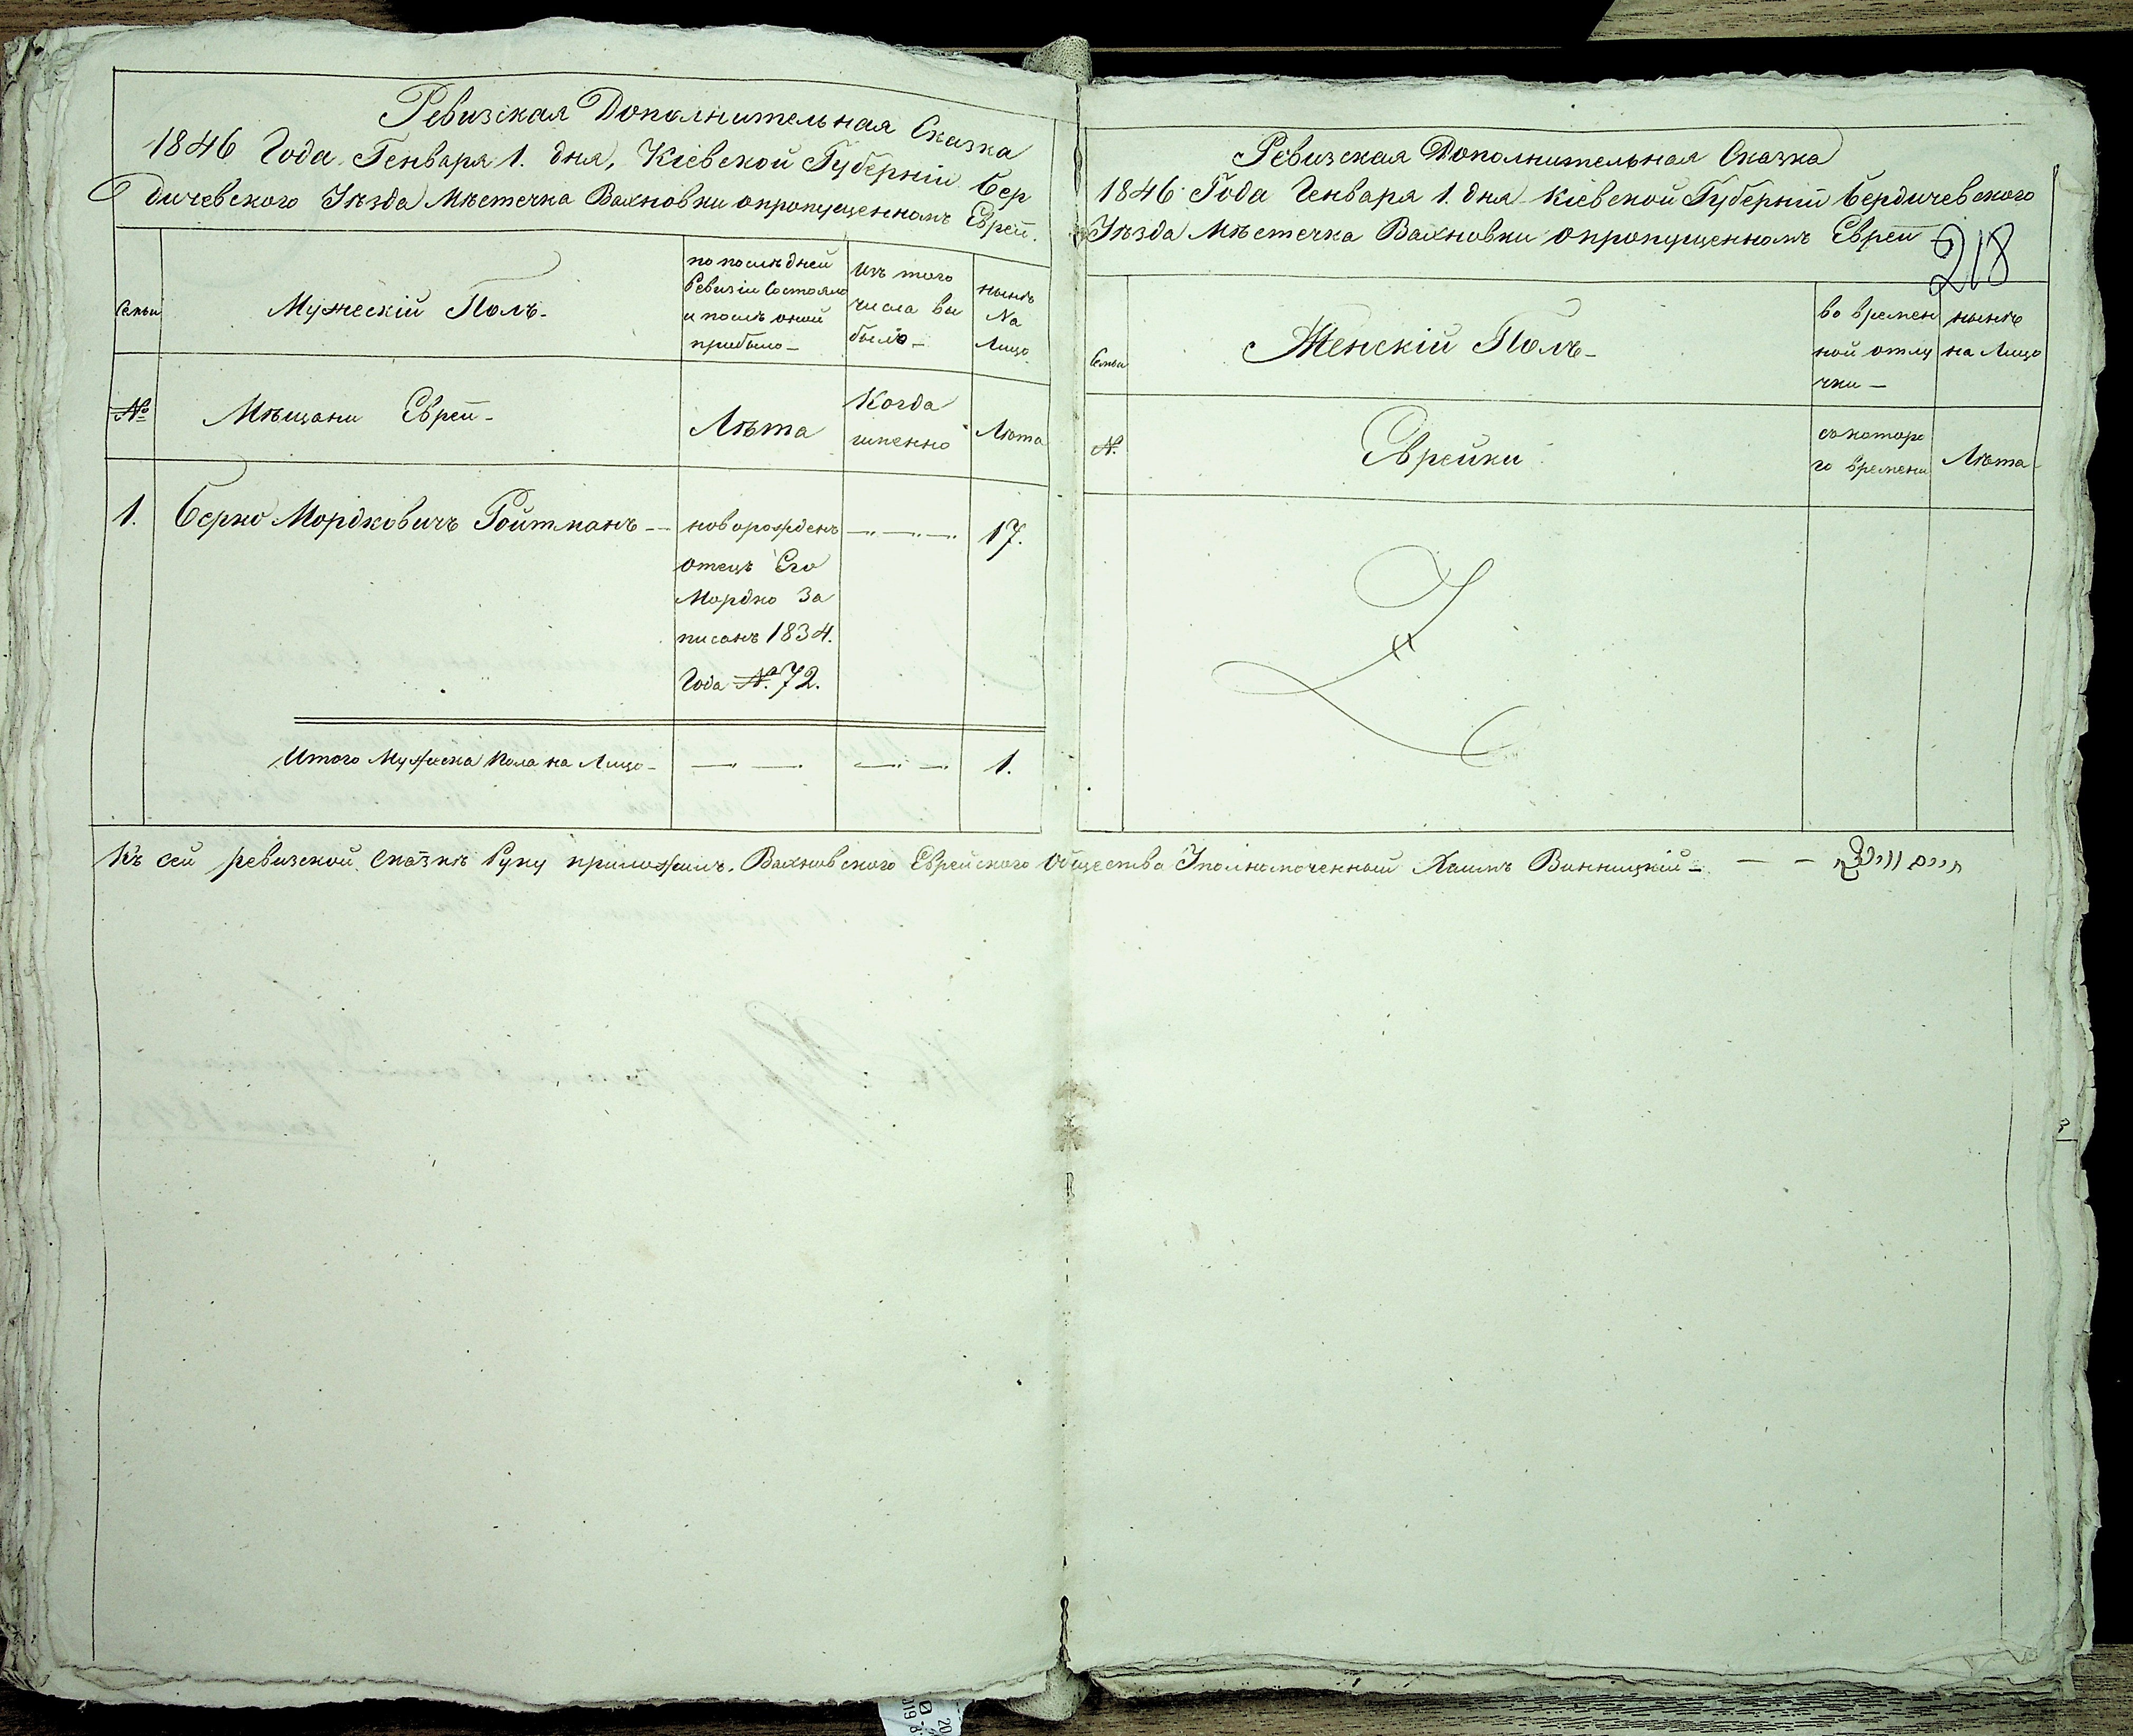 Ревизская Дополнительная Сказка
1846 Года Генваря 1. дня, Кіевской Губерніи Бер
дичевского Уѣзда Мѣстечка Вахновки о пропущенномъ Евреи.
Семьи
Мужескій Полъ
по послѣдней
Ревизіи Состояло
и послѣ оной
прибыло
Изъ того
числа вы
было
нынѣ
На
Лицо
№
Мѣщани Евреи
Лѣта
Когда
имѣнно
Лѣта
1.
Берко Мордковичъ Ройтманъ
новорожденъ
отецъ Его
Мордко За
писанъ 1834.
Года №. 72.
17.
Итого Мужеска Пола на Лицо
1.
Ревизская Дополнительная Сказка
1846 Года Генваря 1. дня Кіевской Губерніи Бердичевского
Уѣзда Мѣстечка Вахновки о пропущенномъ Евреи
218
Семьи
Женскій Полъ
во времен
ной отлу
чки
нынѣ
на Лицо
№.
Еврейки
съ которо
го времени
Лѣта
Къ сей ревизской сказкѣ Руку приложилъ. Вахновского Еврейского Общества Уполномоченный Хаимъ Винницкій